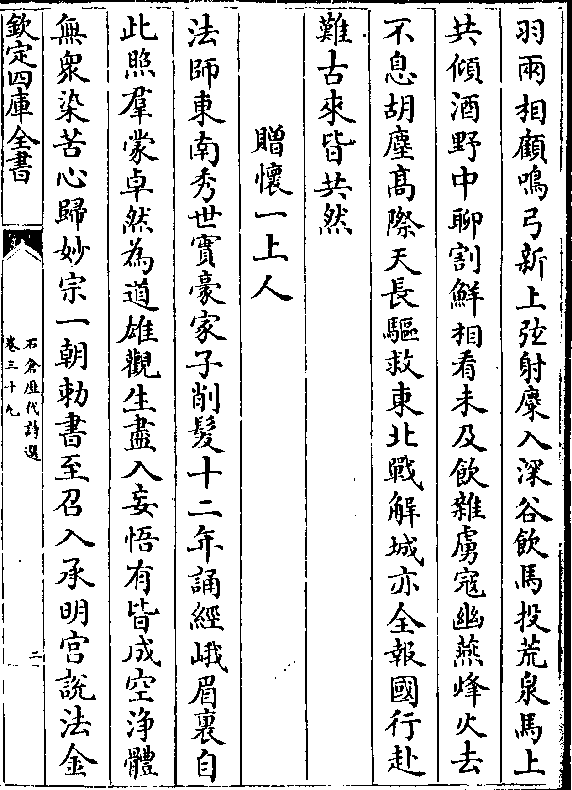 羽兩相顧鳴弓新上弦射麋入深谷飲馬投荒泉馬上
共傾酒野中聊割鮮相看未及飲雜虜寇幽燕烽火去
不息胡塵髙際天長驅救東北戰解城亦全報國行赴
難古來皆共然
贈懷一上人
法師東南秀世實豪家子削髮十二年誦經峨眉裏自
此照羣蒙卓然為道雄觀生盡入妄悟有皆成空淨體
無衆染苦心歸妙宗一朝勅書至召入承明宫説法金
欽定四庫全書
石倉歴代詩選
卷三十九
二